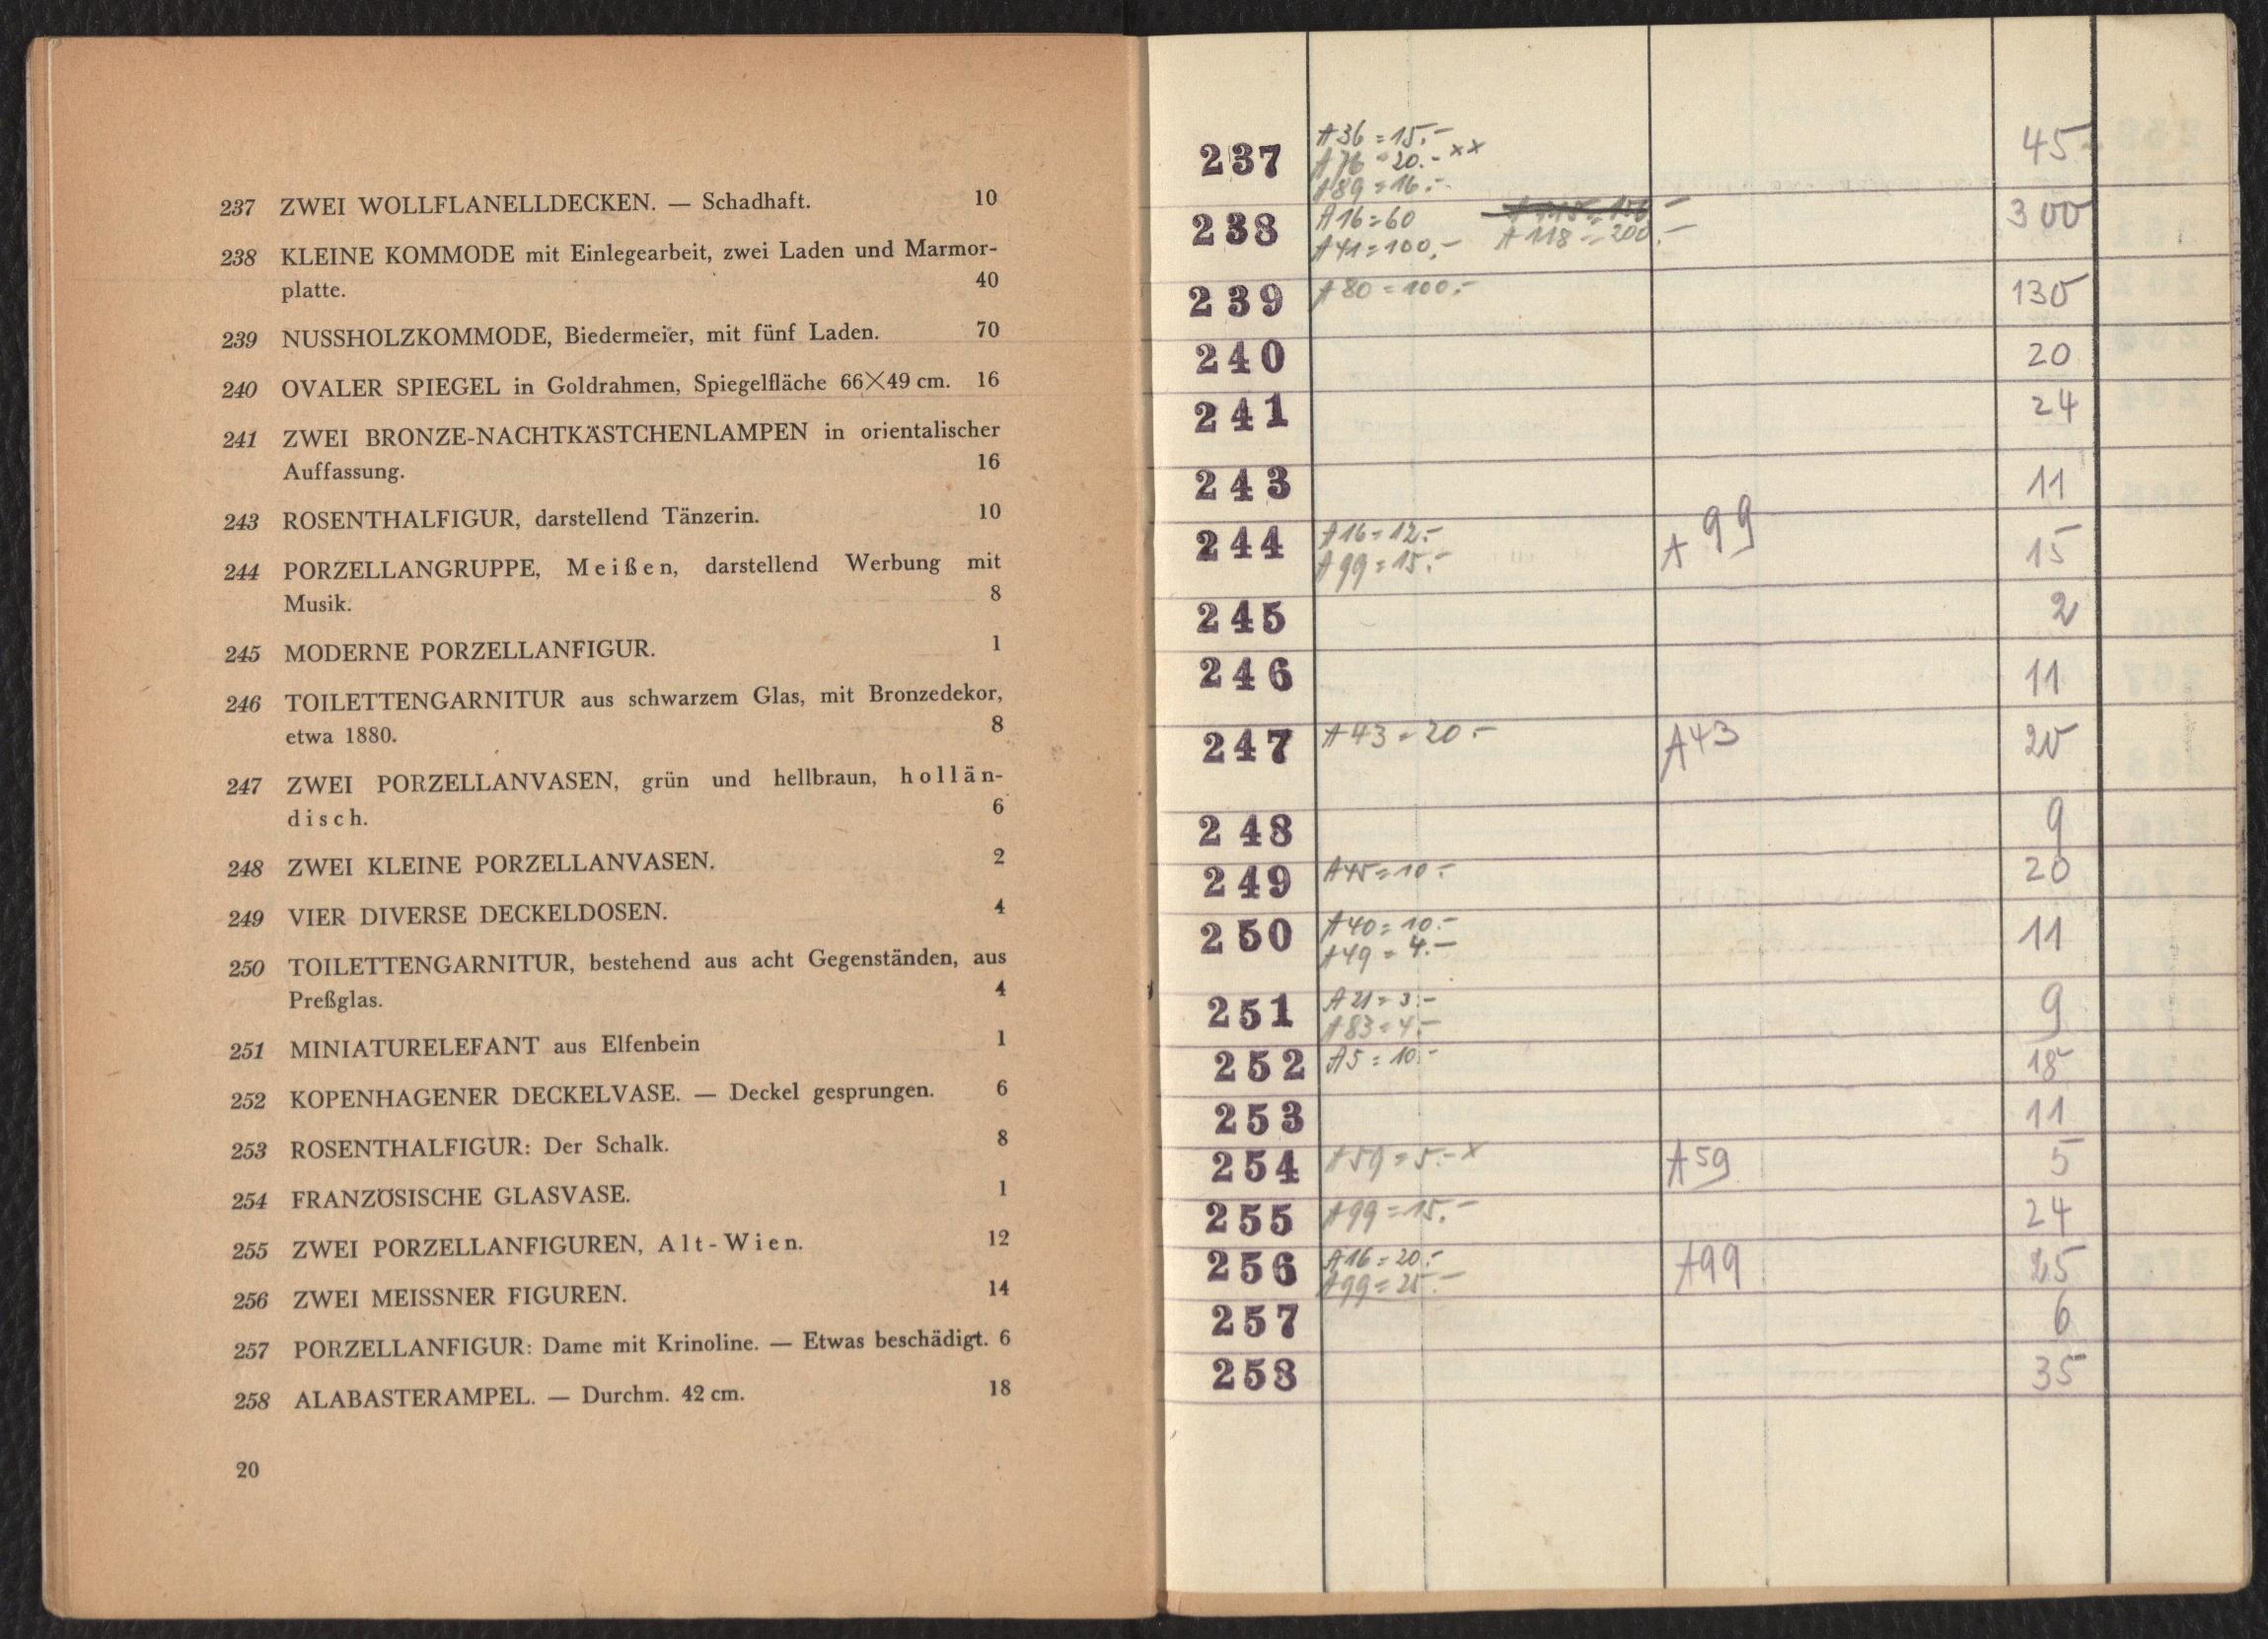 237 ZWEI WOLLFLANELLDECKEN. — Schadhaft. 10
238 KLEINE KOMMODE mit Einlegearbeit, zwei Laden und Marmor-
platte. 40
239 NUSSHOLZKOMMODE, Biedermeier, mit fünf Laden. 70
240 OVALER SPIEGEL in Goldrahmen, Spiegelfläche 66×49 cm. 16
241 ZWEI BRONZE-NACHTKÄSTCHENLAMPEN in orientalischer
Auffassung. 16
243 ROSENTHALFIGUR, darstellend Tänzerin. 10
244 PORZELLANGRUPPE, Meißen, darstellend Werbung mit
Musik. 8
245 MODERNE PORZELLANFIGUR. 1
246 TOILETTENGARNITUR aus schwarzem Glas, mit Bronzedekor,
etwa 1880. 8
247 ZWEI PORZELLANVASEN, grün und hellbraun, hollän-
disch. 6
248 ZWEI KLEINE PORZELLANVASEN. 2
249 VIER DIVERSE DECKELDOSEN. 4
250 TOILETTENGARNITUR, bestehend aus acht Gegenständen, aus
Preßglas. 4
251 MINIATURELEFANT aus Elfenbein 1
252 KOPENHAGENER DECKELVASE. — Deckel gesprungen. 6
253 ROSENTHALFIGUR: Der Schalk. 8
254 FRANZÖSISCHE GLASVASE. 1
255 ZWEI PORZELLANFIGUREN, Alt-Wien. 12
256 ZWEI MEISSNER FIGUREN. 14
257 PORZELLANFIGUR: Dame mit Krinoline. — Etwas beschädigt. 6
258 ALABASTERAMPEL. — Durchm. 42 cm. 18
20
A36=15.-
237 A76=20.- xx 45
A89=16.-
238 A16=60 300
A41=100,- A118=200.-
239 A80=100.- 130
240 20
241 24
243 11
244 A16=12.- A99 15
A99=15.-
245 2
246 11
247 A43=20.- A43 20
248 9
249 A45=10.- 20
250 A40=10.- 11
A49=4.-
251 A21=3.- 9
A83=4.-
252 A5=10.- 18
253 11
254 A59=5.- x A59 5
255 A99=15.- 24
256 A16=20.- A99 25
A99=25.-
257 6
258 35